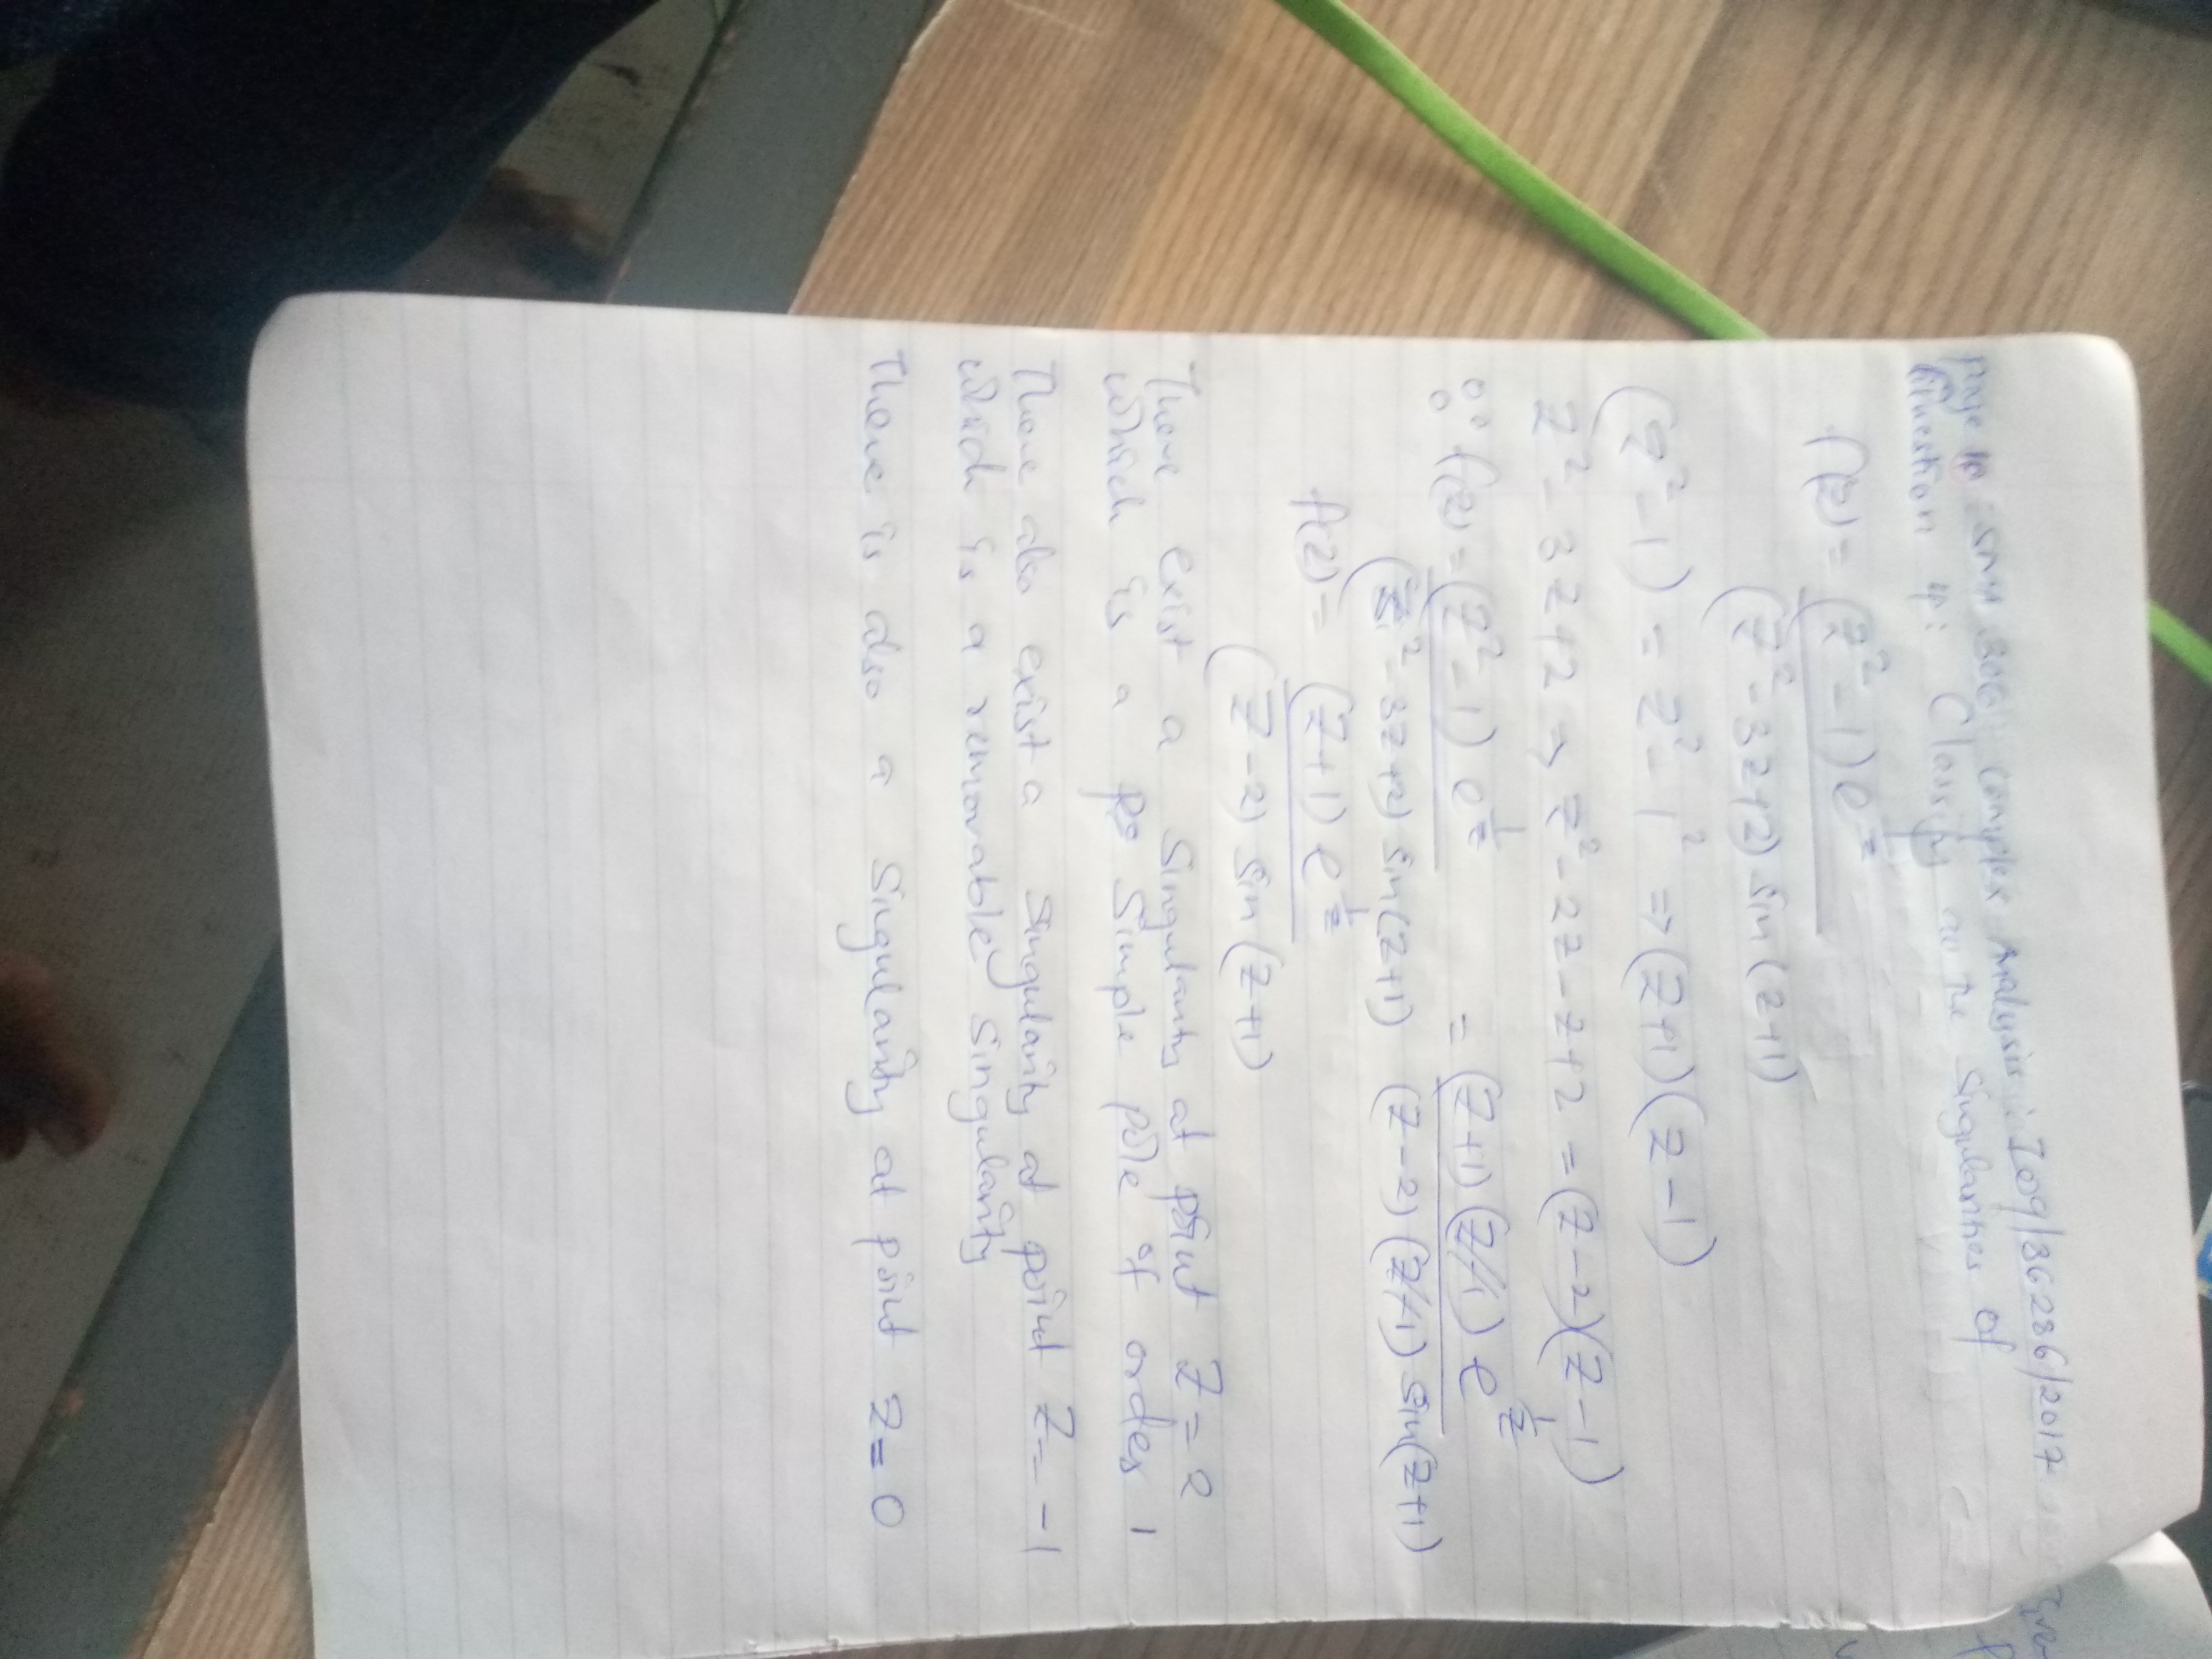 Page 10 SMA 306: Complex Analysis: I09/36286/2017
Question 4: Classify all the Singularities of
f(z) = (z² - 1) e^{1/z}
(z² - 3z + 2) sin(z+1)
(z² - 1) = z² - 1² => (z+1)(z - 1)
z² - 3z + 2 => z² - 2z - z + 2 = (z - 2)(z - 1)
∴ f(z) = (z² - 1) e^{1/z} = (z+1)(z-1) e^{1/z}
(z² - 3z + 2) sin(z+1) (z - 2)(z-1) sin(z+1)
f(z) = (z+1) e^{1/z}
(z - 2) sin(z+1)
There exist a Singularity at point z = 2
which is a Simple pole of order 1
There also exist a Singularity at point z = -1
which is a removable singularity
There is also a Singularity at point z = 0